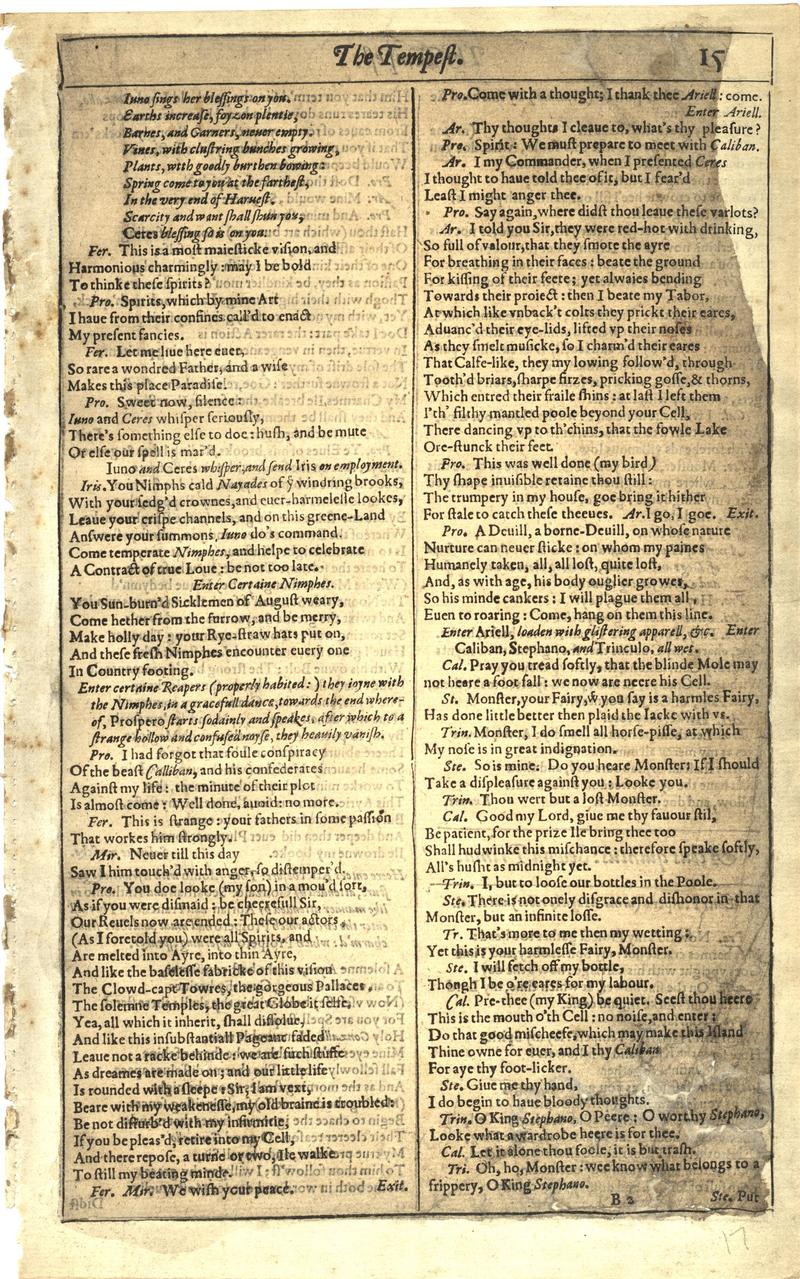 The Tempeſt. 15
Iuno ſings her bleſſings on you.
Earths increaſe, foyzon plentie,
Barnes, and Garners, neuer empty.
Vines, with cluſtring bunches growing,
Plants, wtth goodly burthen bowing:
Spring come to you at the fartheſt,
In the very end of Harueſt.
Scarcity and want ſhall ſhun you,
Ceres bleſſing ſo is on you.
Fer. This is a moſt maieſticke viſion, and
Harmonious charmingly: may I be bold
To thinke theſe ſpirits?
Pro. Spirits, which by mine Art
I haue from their confines call'd to enact
My preſent fancies.
Fer. Let me liue here euer,
So rare a wondred Father, and a wiſe
Makes this place Paradiſe.
Pro. Sweet now, ſilence:
Iuno and Ceres whiſper ſeriouſly,
There's ſomething elſe to doe: huſh, and be mute
Or elſe our ſpell is mar'd.
Iuno and Ceres whiſper, and ſend Iris on employment.
Iris. You Nimphs cald Nayades of ÿ windring brooks,
With your ſedg'd crownes, and euer-harmeleſſe lookes,
Leaue your criſpe channels, and on this greene-Land
Anſwere your ſummons, Iuno do's command.
Come temperate Nimphes, and helpe to celebrate
A Contract of true Loue: be not too late.
Enter Certaine Nimphes.
You Sun-burn'd Sicklemen of Auguſt weary,
Come hether from the furrow, and be merry,
Make holly day: your Rye-ſtraw hats put on,
And theſe freſh Nimphes encounter euery one
In Country footing.
Enter certaine Reapers (properly habited:) they ioyne with
the Nimphes, in a gracefull dance, towards the end where-
of, Proſpero ſtarts ſodainly and ſpeakes, after which to a
ſtrange hollow and confuſed noyſe, they heauily vaniſh.
Pro. I had forgot that foule conſpiracy
Of the beaſt Calliban, and his confederates
Againſt my life: the minute of their plot
Is almoſt come: Well done, auoid: no more.
Fer. This is ſtrange: your fathers in ſome paſſion
That workes him ſtrongly.
Mir. Neuer till this day
Saw I him touch'd with anger, ſo diſtemper'd.
Pro. You doe looke (my ſon) in a mou'd ſort,
As if you were diſmaid: be cheerefull Sir,
Our Reuels now are ended: Theſe our actors,
(As I foretold you) were all Spirits, and
Are melted into Ayre, into thin Ayre,
And like the baſeleſſe fabricke of this viſion
The Clowd-capt Towres, the gorgeous Pallaces,
The ſolemne Temples, the great Globe it ſelfe,
Yea, all which it inherit, ſhall diſſolue,
And like this inſubſtantiall Pageant faded
Leaue not a racke behinde: we are ſuch ſtuffe
As dreames are made on; and our little life
Is rounded with a ſleepe: Sir, I am vext,
Beare with my weakeneſſe, my old braine is troubled:
Be not diſturb'd with my infirmitie,
If you be pleas'd, retire into my Cell,
And there repoſe, a turne or two, Ile walke
To ſtill my beating minde.
Fer. Mir. We wiſh your peace. Exit.
Pro. Come with a thought; I thank thee Ariell: come.
Enter Ariell.
Ar. Thy thoughts I cleaue to, what's thy pleaſure?
Pro. Spirit: We muſt prepare to meet with Caliban.
Ar. I my Commander, when I preſented Ceres
I thought to haue told thee of it, but I fear'd
Leaſt I might anger thee.
Pro. Say again, where didſt thou leaue theſe varlots?
Ar. I told you Sir, they were red-hot with drinking,
So full of valour, that they ſmote the ayre
For breathing in their faces: beate the ground
For kiſſing of their feete; yet alwaies bending
Towards their proiect: then I beate my Tabor,
At which like vnback't colts they prickt their eares,
Aduanc'd their eye-lids, lifted vp their noſes
As they ſmelt muſicke, ſo I charm'd their eares
That Calfe-like, they my lowing follow'd, through
Tooth'd briars, ſharpe firzes, pricking goſſe, & thorns,
Which entred their fraile ſhins: at laſt I left them
I'th' filthy mantled poole beyond your Cell,
There dancing vp to th'chins, that the fowle Lake
Ore-ſtunck their feet.
Pro. This was well done (my bird)
Thy ſhape inuiſible retaine thou ſtill:
The trumpery in my houſe, goe bring it hither
For ſtale to catch theſe theeues. Ar. I go, I goe. Exit.
Pro. A Deuill, a borne-Deuill, on whoſe nature
Nurture can neuer ſticke: on whom my paines
Humanely taken, all, all loſt, quite loſt,
And, as with age, his body ouglier growes,
So his minde cankers: I will plague them all,
Euen to roaring: Come, hang on them this line.
Enter Ariell, loaden with gliſtering apparell, &c. Enter
Caliban, Stephano, and Trinculo, all wet.
Cal. Pray you tread ſoftly, that the blinde Mole may
not heare a foot fall: we now are neere his Cell.
St. Monſter, your Fairy, ẇ you ſay is a harmles Fairy,
Has done little better then plaid the Iacke with vs.
Trin. Monſter, I do ſmell all horſe-piſſe, at which
My noſe is in great indignation.
Ste. So is mine. Do you heare Monſter: If I ſhould
Take a diſpleaſure againſt you: Looke you.
Trin. Thou wert but a loſt Monſter.
Cal. Good my Lord, giue me thy fauour ſtil,
Be patient, for the prize Ile bring thee too
Shall hudwinke this miſchance: therefore ſpeake ſoftly,
All's huſht as midnight yet.
Trin. I, but to looſe our bottles in the Poole.
Ste. There is not onely diſgrace and diſhonor in that
Monſter, but an infinite loſſe.
Tr. That's more to me then my wetting:
Yet this is your harmleſſe Fairy, Monſter.
Ste. I will fetch off my bottle,
Though I be o're eares for my labour.
Cal. Pre-thee (my King) be quiet. Seeſt thou heere
This is the mouth o'th Cell: no noiſe, and enter:
Do that good miſcheefe, which may make this Iſland
Thine owne for euer, and I thy Caliban
For aye thy foot-licker.
Ste. Giue me thy hand,
I do begin to haue bloody thoughts.
Trin. O King Stephano, O Peere: O worthy Stephano,
Looke what a wardrobe heere is for thee.
Cal. Let it alone thou foole, it is but traſh.
Tri. Oh, ho, Monſter: wee know what belongs to a
frippery, O King Stephano.
B 2 Ste. Put
17